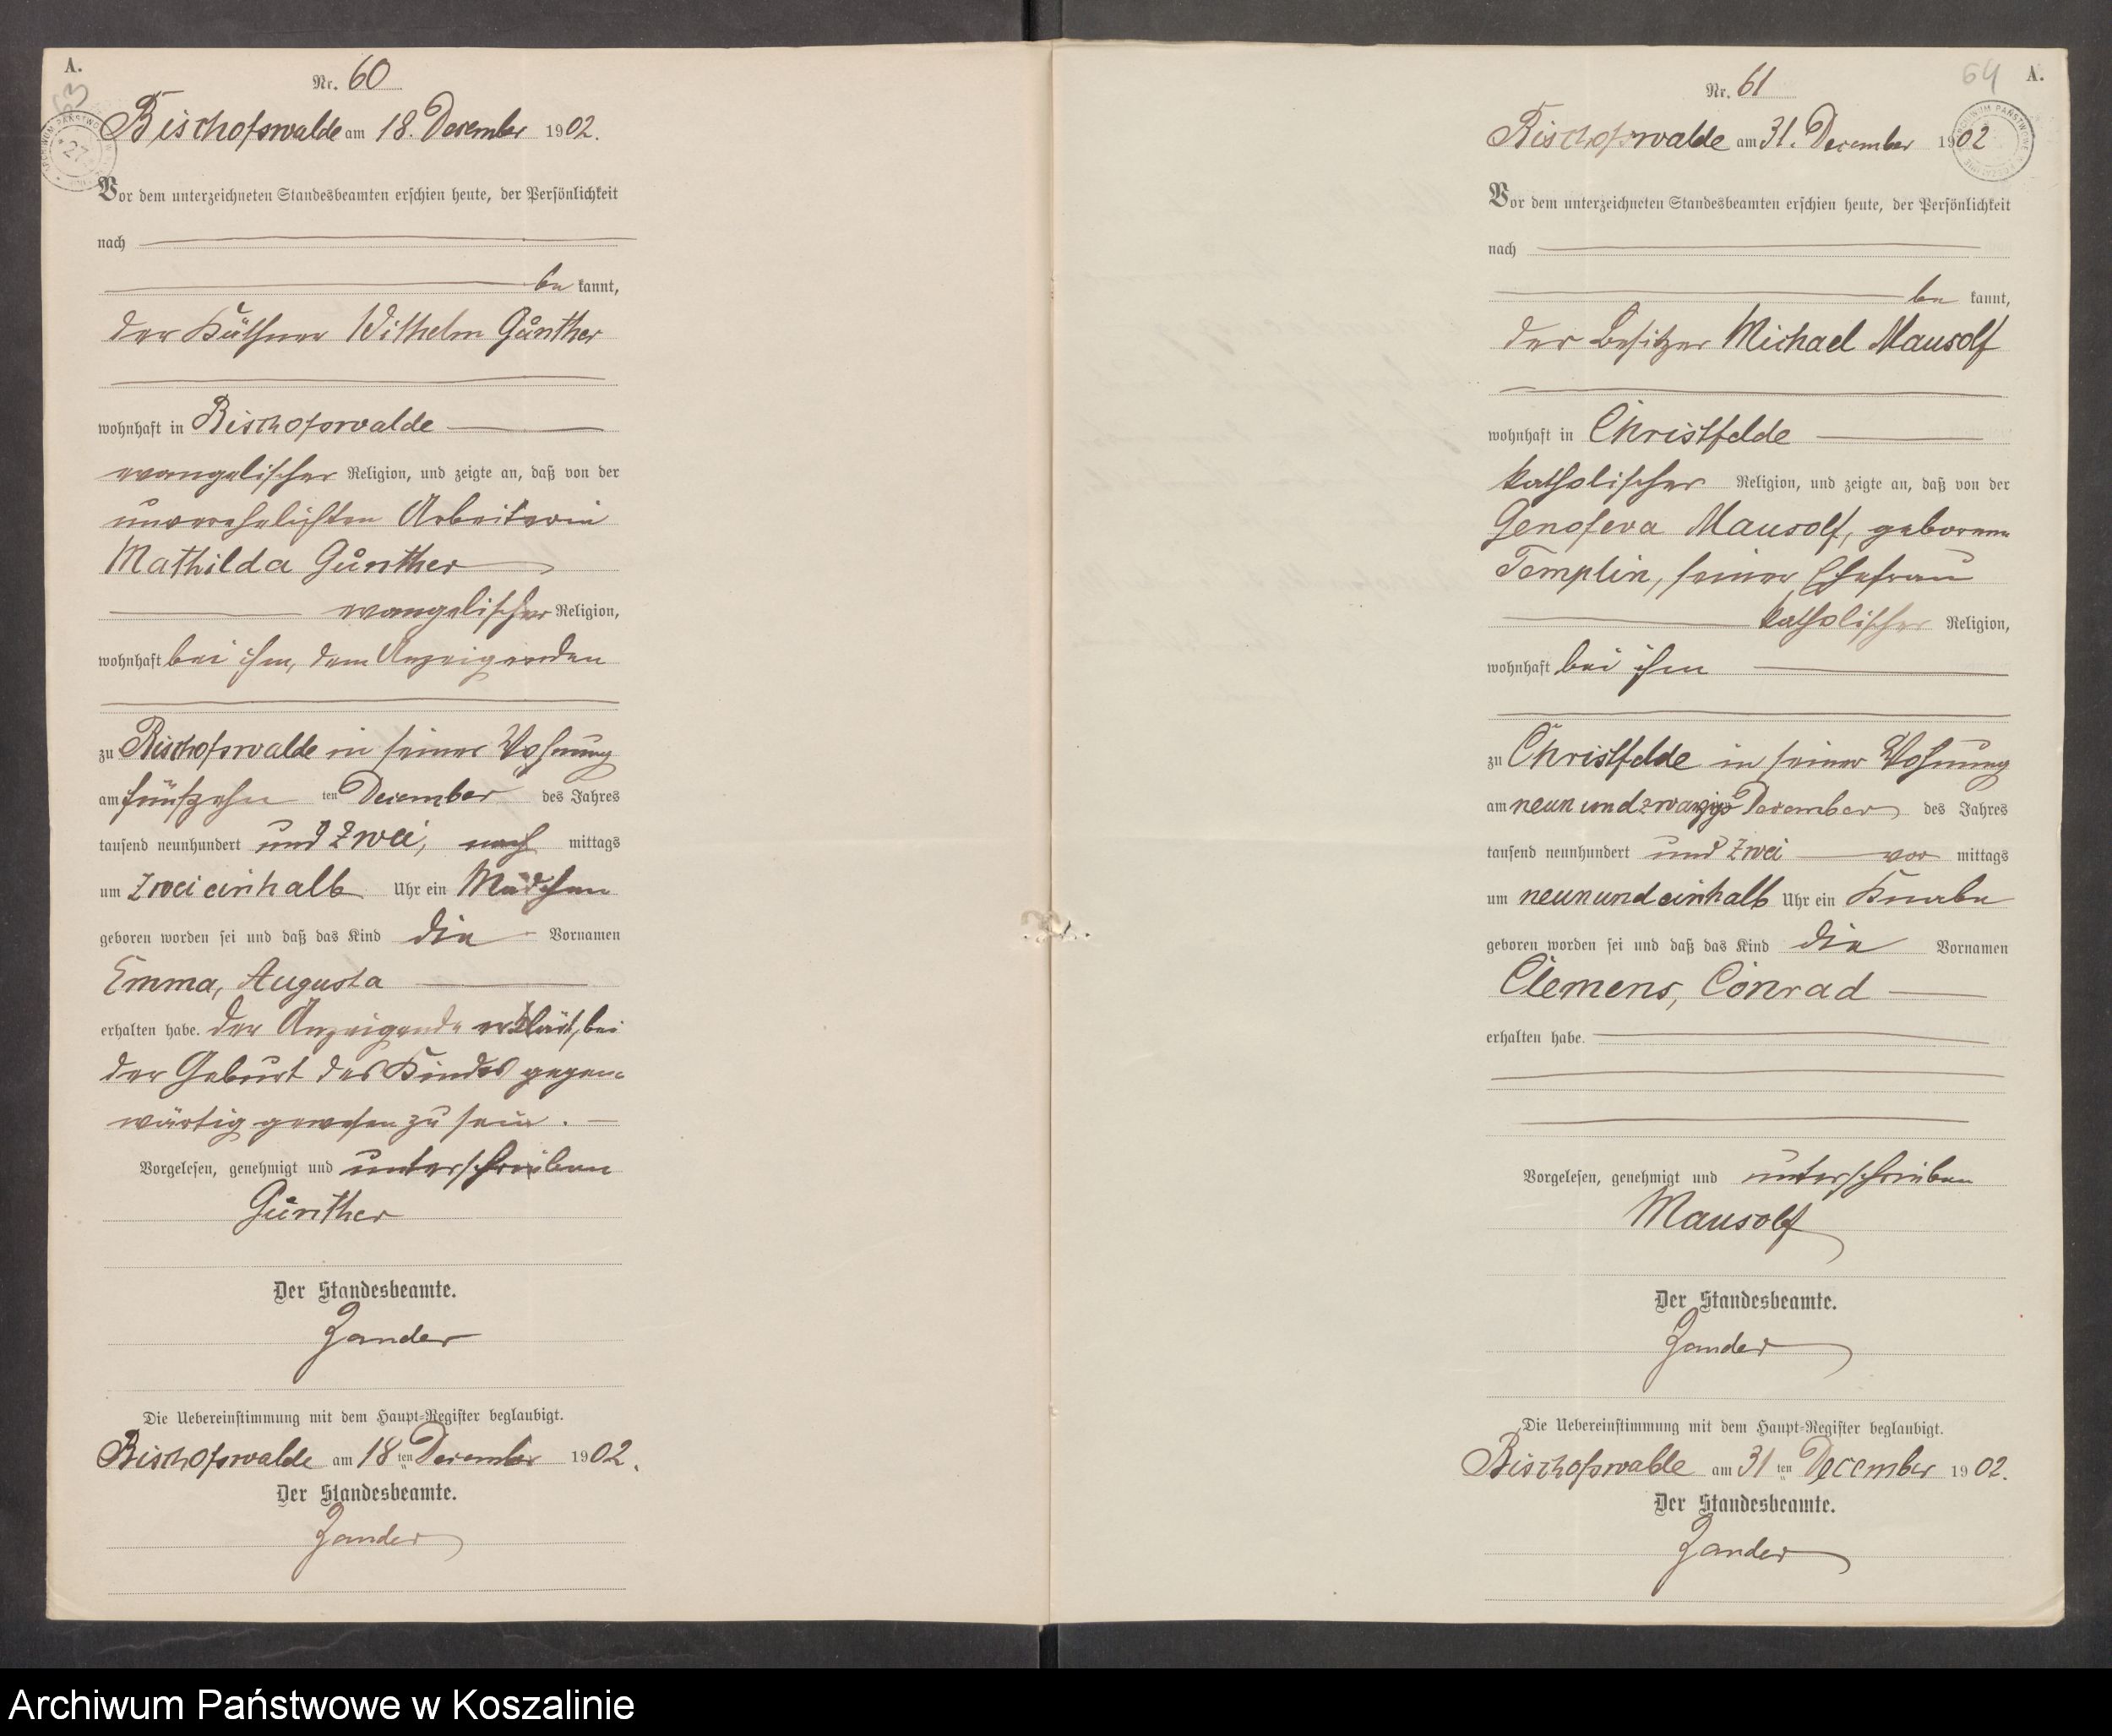 A.
63
Nr. 60
Bischofswalde am 18. Dezember 1902.
Vor dem unterzeichneten Standesbeamten erschien heute, der Persönlichkeit
nach
be kannt,
der Käthner Wilhelm Günther
wohnhaft in Bischofswalde
evangelischer Religion, und zeigte an, daß von der
unverehelichten Arbeiterin
Mathilda Günther
evangelischer Religion,
wohnhaft bei ihm, dem Anzeigenden
zu Bischofswalde in seiner Wohnung
am fünfzehn ten December des Jahres
tausend neunhundert und zwei, nach mittags
um zwei einhalb Uhr ein Mädchen
geboren worden sei und daß das Kind die Vornamen
Emma, Augusta
erhalten habe. Der Anzeigende erklärt, bei
der Geburt des Kindes gegen-
wärtig gewesen zu sein.
Vorgelesen, genehmigt und unterschrieben
Günther
Der Standesbeamte.
Zander
Die Uebereinstimmung mit dem Haupt-Register beglaubigt.
Bischofswalde am 18 ten December 1902.
Der Standesbeamte.
Zander
64
A.
Nr. 61
Bischofswalde am 31. December 1902
Vor dem unterzeichneten Standesbeamten erschien heute, der Persönlichkeit
nach
be kannt,
der Besitzer Michael Mausolf
wohnhaft in Christfelde
katholischer Religion, und zeigte an, daß von der
Genofeva Mausolf, geborene
Templin, seiner Ehefrau
katholischer Religion,
wohnhaft bei ihm
zu Christfelde in seiner Wohnung
am neun und zwanzigs December des Jahres
tausend neunhundert und zwei vor mittags
um neun und einhalb Uhr ein Knabe
geboren worden sei und daß das Kind die Vornamen
Clemens, Conrad
erhalten habe.
Vorgelesen, genehmigt und unterschrieben
Mausolf
Der Standesbeamte.
Zander
Die Uebereinstimmung mit dem Haupt-Register beglaubigt.
Bischofswalde am 31 ten December 1902.
Der Standesbeamte.
Zander
Archiwum Państwowe w Koszalinie